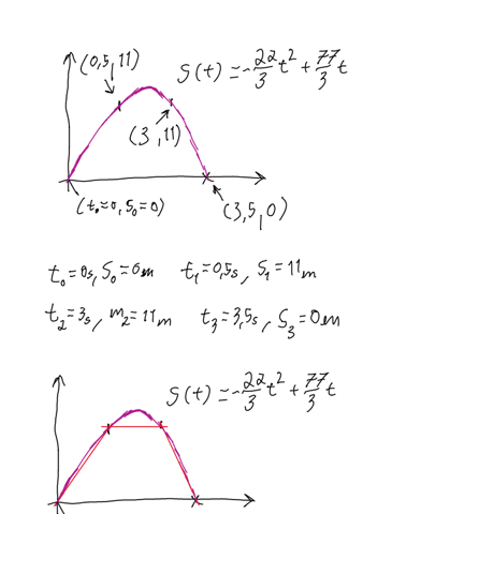 (0,5,11)
S(t) = -22/3 t² + 77/3 t
(3,11)
(t₀=0, S₀=0)
(3,5,0)
t₀=0s, S₀=0m t₁=0,5s, S₁=11m
t₂=3s, m₂=11m t₃=3,5s, S₃=0m
S(t) = -22/3 t² + 77/3 t